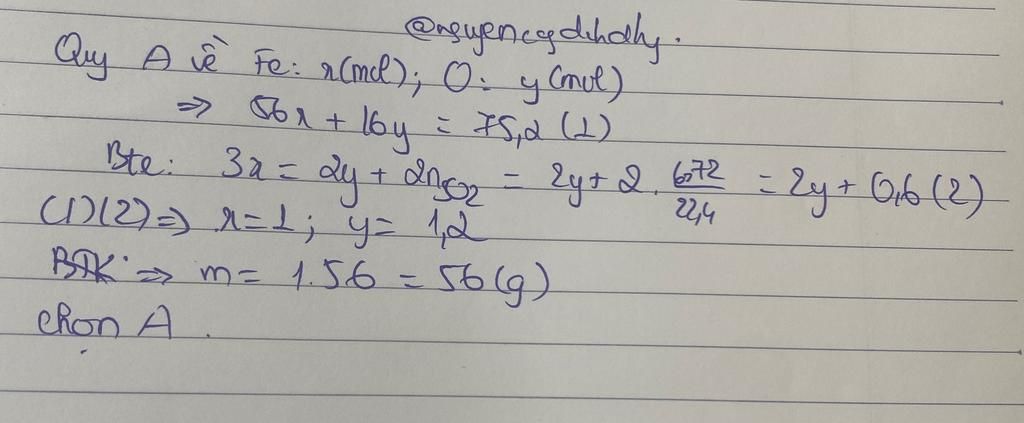 @nguyencgdihdhy.
Quy A về Fe: x(mol); O: y(mol)
⇒ 56x + 16y = 75,2 (1)
Bte: 3x = 2y + 2nSO2 = 2y + 2 . 6,72/22,4 = 2y + 0,6 (2)
(1)(2) ⇒ x = 1; y = 1,2
BTK: ⇒ m = 1.56 = 56(g)
chọn A.